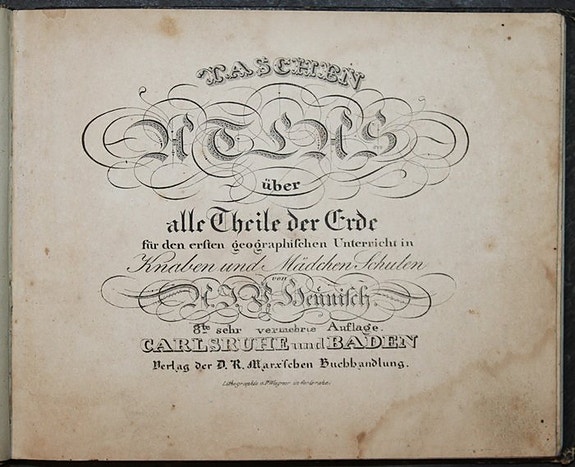 TASCHEN
ATLAS
über
alle Theile der Erde
für den ersten geographischen Unterricht in
Knaben und Mädchen Schulen
von
A. J. V. Heunisch.
8te sehr vermehrte Auflage.
CARLSRUHE und BADEN
Verlag der D. R. Marx'schen Buchhandlung.
Lithographie v. P. Wagner in Karlsruhe.